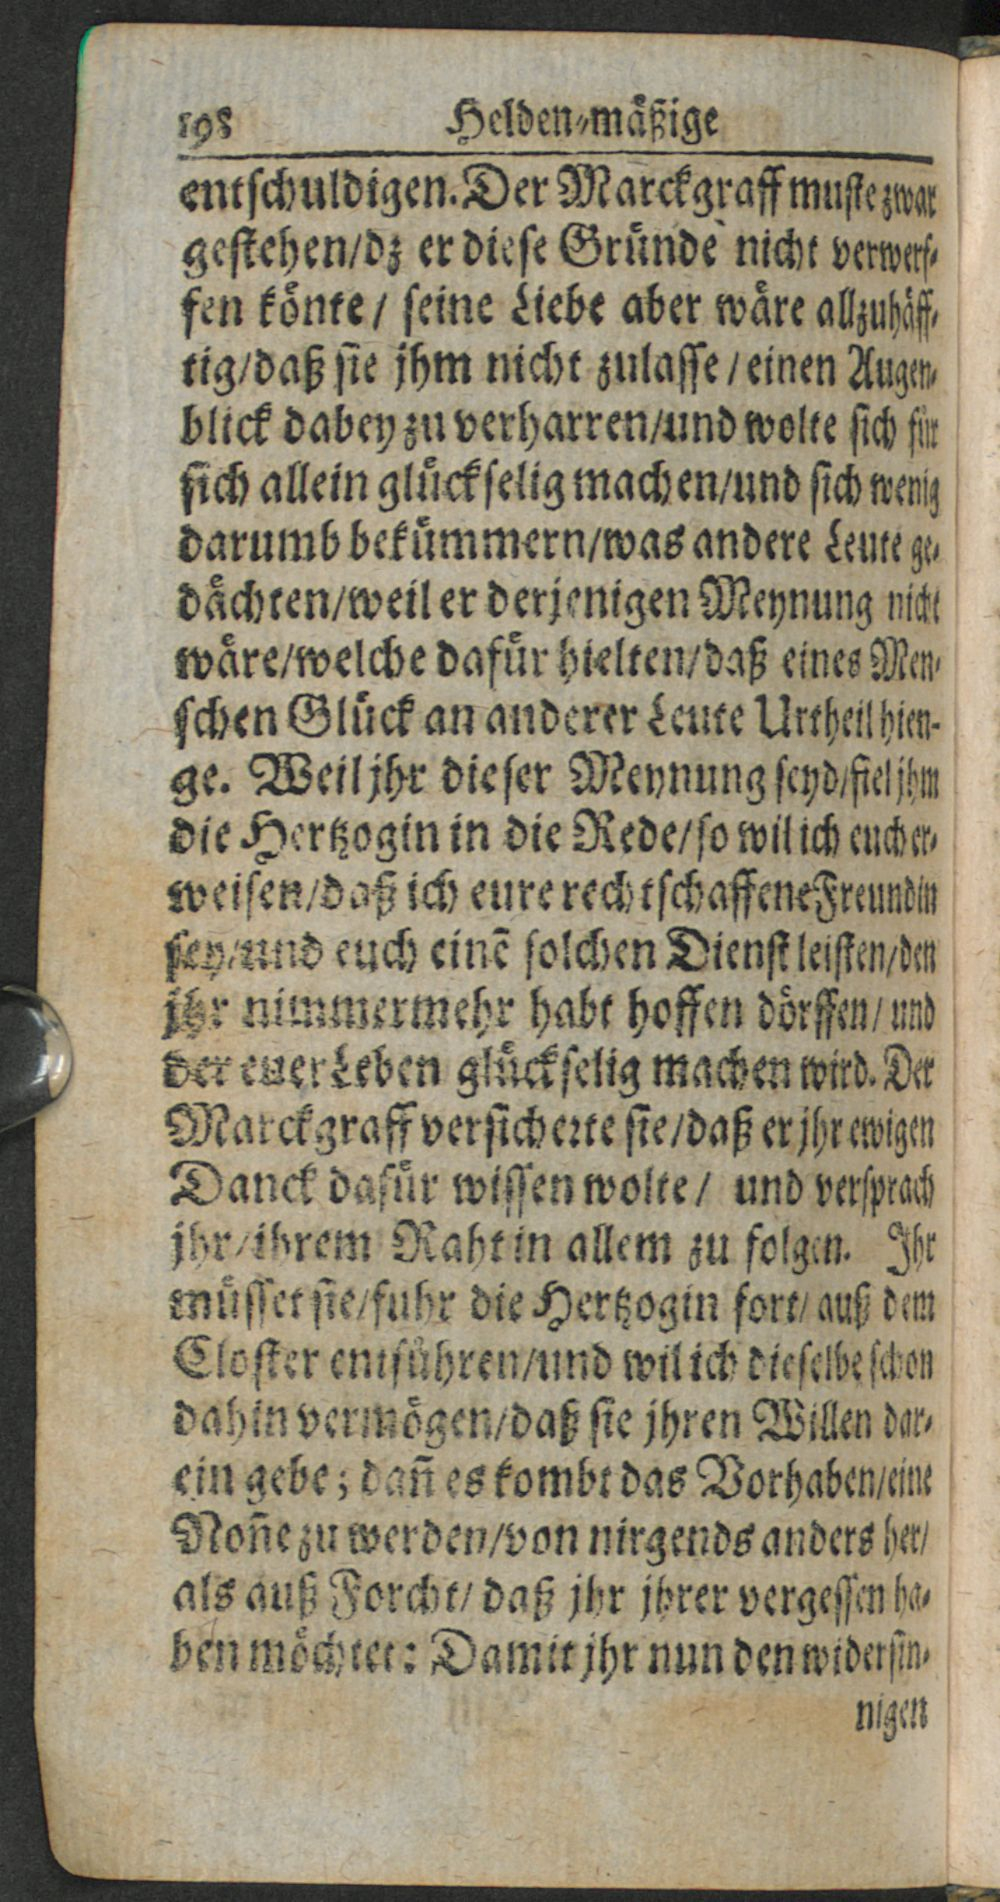 198 Helden-mäßige
entschuldigen. Der Marckgraff muste zwar
gestehen/dz er diese Gründe nicht verwerf-
fen könte / seine Liebe aber wäre allzuhäff-
tig/daß sie jhm nicht zulasse / einen Augen-
blick dabey zu verharren/und wolte sich für
sich allein glückselig machen/und sich wenig
darumb bekümmern/was andere Leute ge-
dächten/weil er derjenigen Meynung nicht
wäre/welche dafür hielten/daß eines Men-
schen Glück an anderer Leute Urtheil hien-
ge. Weil jhr dieser Meynung seyd/fiel jhm
die Hertzogin in die Rede/so wil ich euch er-
weisen/daß ich eure rechtschaffene Freundin
sey/und euch einē solchen Dienst leisten/den
jhr nimmermehr habt hoffen dörffen/ und
der euer Leben glückselig machen wird. Der
Marckgraff versicherte sie/daß er jhr ewigen
Danck dafür wissen wolte / und versprach
jhr/ihrem Raht in allem zu folgen. Ihr
müsset sie/fuhr die Hertzogin fort/ auß dem
Closter entführen/und wil ich dieselbe schon
dahin vermögen/daß sie jhren Willen dar-
ein gebe; dañ es kombt das Vorhaben/eine
Noñe zu werden/von nirgends anders her/
als auß Forcht/ daß jhr jhrer vergessen ha-
ben möchtet: Damit jhr nun den widersin-
nigen